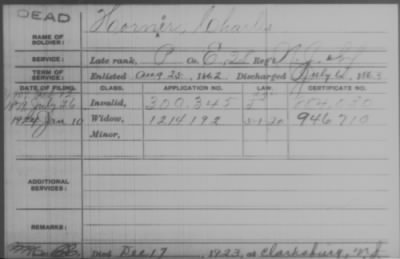 DEAD
NAME OF SOLDIER:
Horner, Charles
SERVICE:
Late rank, P Co. E, 28 Reg't N.J. Inf
TERM OF SERVICE:
Enlisted Aug 28, 1862. Discharged July 6, 1863
DATE OF FILING. CLASS. APPLICATION NO. LAW. CERTIFICATE NO.
July 26 Invalid, 300,345
1924 Jan 10 Widow, 1214192 5-1-20 946710
Minor,
ADDITIONAL SERVICES:
REMARKS:
Died Dec 17, 1923, at Clarksburg, N.J.